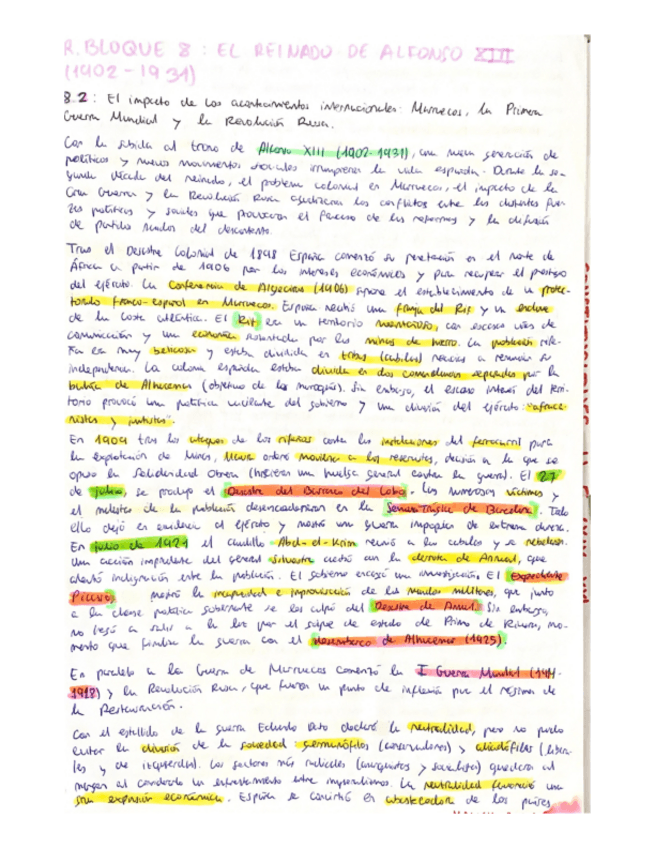 R. BLOQUE 8: EL REINADO DE ALFONSO XIII
(1902-1931)
8.2: El impacto de los acontecimientos internacionales: Marruecos, la Primera
Guerra Mundial y la Revolución Rusa.
Con la subida al trono de Alfonso XIII (1902-1931), una nueva generación de
políticos y nuevos movimientos sociales irrumpieron la vida española. Durante la se-
gunda década del reinado, el problema colonial en Marruecos, el impacto de la
Gran Guerra y la Revolución Rusa agudizaron los conflictos entre las distintas fuer-
zas políticas y sociales que provocaron el fracaso de las reformas y la difusión
de partido del descontento.
Tras el Desastre Colonial de 1898 España comenzó su penetración en el norte de
África a partir de 1906 por los intereses económicos y para recuperar el prestigio
del ejército. La Conferencia de Algeciras (1906) el establecimiento de un protec-
torado franco-español en Marruecos. España recibió una franja del Rif y un enclave
de la costa atlántica. El Rif era un territorio montañoso, con escasas vías de
comunicación y una economía sustentada por las minas de hierro. La población rife-
ña era muy belicosa y estaba dividida en tribus (cabilas) reacias a renunciar su
independencia. La colonia española estaba dividida en dos comandancias separadas por la
bahía de Alhucemas (objetivo de los marroquís). Sin embargo, el escaso interés del terri-
torio provocó una política vacilante del gobierno y una división del ejército: "africa-
nistas y juntistas".
En 1909 tras los ataques de los rifeños contra las instalaciones del ferrocarril para
la explotación de minas, Maura ordenó movilizar a los reservistas, decisión a la que se
opuso la Solidaridad Obrera (hicieron una huelga general contra la guerra). El 27
de julio, se produjo el Desastre del Barranco del Lobo. Las numerosas víctimas y
el malestar de la población desencadenaron en la Semana Trágica de Barcelona. Todo
ello dejó en evidencia al ejército y mostró una guerra impopular de extrema dureza.
En julio de 1921 el caudillo Abd-el-Krim reunió a las cabilas y se rebelaron.
Una acción imprudente del general Silvestre acabó con la derrota de Annual, que
alentó indignación entre la población. El gobierno encargó una investigación. El Expediente
Picasso, mostró la incapacidad e improvisación de los mandos militares, que junto
a la clase política gobernante se los culpó del Desastre de Annual. Sin embargo,
no llegó a salir a la luz por el golpe de estado de Primo de Rivera, mo-
mento que finaliza la guerra con el desembarco de Alhucemas (1925).
En paralelo a la Guerra de Marruecos comenzó la I Guerra Mundial (1914-
1918) y la Revolución Rusa, que fueron un punto de inflexión para el régimen de
la Restauración.
Con el estallido de la guerra Eduardo Dato declaró la neutralidad, pero no pudo
evitar la división de la sociedad: germanófilos (conservadores) y aliadófilos (libera-
les y de izquierdas). Los sectores más radicales (anarquistas y socialistas) quedaron al
margen al considerarlo un enfrentamiento entre imperialismos. La neutralidad favoreció una
gran expansión económica. España se convirtió en abastecedora de los países